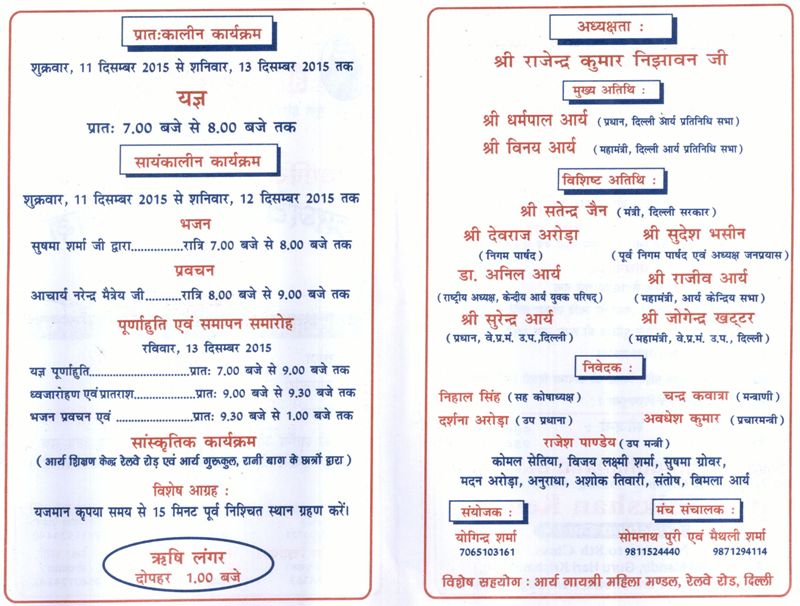 प्रातःकालीन कार्यक्रम
शुक्रवार, 11 दिसम्बर 2015 से शनिवार, 13 दिसम्बर 2015 तक
यज्ञ
प्रातः 7.00 बजे से 8.00 बजे तक
सायंकालीन कार्यक्रम
शुक्रवार, 11 दिसम्बर 2015 से शनिवार, 12 दिसम्बर 2015 तक
भजन
सुषमा शर्मा जी द्वारा................रात्रि 7.00 बजे से 8.00 बजे तक
प्रवचन
आचार्य नरेन्द्र मैत्रेय जी..........रात्रि 8.00 बजे से 9.00 बजे तक
पूर्णाहुति एवं समापन समारोह
रविवार, 13 दिसम्बर 2015
यज्ञ पूर्णाहुति............................प्रातः 7.00 बजे से 9.00 बजे तक
ध्वजारोहण एवं प्रातराश........................प्रातः 9.00 बजे से 9.30 बजे तक
भजन प्रवचन एवं .....................प्रातः 9.30 बजे से 1.00 बजे तक
सांस्कृतिक कार्यक्रम
( आर्य शिक्षण केन्द्र रेलवे रोड़ एवं आर्य गुरूकुल, रानी बाग के छात्रों द्वारा )
विशेष आग्रह :
यजमान कृपया समय से 15 मिनट पूर्व निश्चित स्थान ग्रहण करें।
ऋषि लंगर
दोपहर 1.00 बजे
अध्यक्षता :
श्री राजेन्द्र कुमार निझावन जी
मुख्य अतिथि :
श्री धर्मपाल आर्य ( प्रधान, दिल्ली आर्य प्रतिनिधि सभा )
श्री विनय आर्य ( महामंत्री, दिल्ली आर्य प्रतिनिधि सभा )
विशिष्ट अतिथि :
श्री सतेन्द्र जैन ( मंत्री, दिल्ली सरकार )
श्री देवराज अरोड़ा श्री सुदेश भसीन
( निगम पार्षद ) ( पूर्व निगम पार्षद एवं अध्यक्ष जनप्रयास )
डा. अनिल आर्य श्री राजीव आर्य
( राष्ट्रीय अध्यक्ष, केन्द्रीय आर्य युवक परिषद् ) ( महामंत्री, आर्य केन्द्रिय सभा )
श्री सुरेन्द्र आर्य श्री जोगेन्द्र खट्टर
( प्रधान, वे.प्र.मं. उ.प.,दिल्ली ) ( महामंत्री, वे.प्र.मं. उ.प., दिल्ली )
निवेदक :
निहाल सिंह ( सह कोषाध्यक्ष ) चन्द्र कवात्रा ( मन्त्राणी )
दर्शना अरोड़ा ( उप प्रधाना ) अवधेश कुमार ( प्रचारमन्त्री )
राजेश पाण्डेय ( उप मन्त्री )
कोमल सेतिया, विजय लक्ष्मी शर्मा, सुषमा ग्रोवर,
मदन अरोड़ा, अनुराधा, अशोक तिवारी, संतोष, बिमला आर्य
संयोजक : मंच संचालक :
योगिन्द्र शर्मा सोमनाथ पुरी एवं मैथली शर्मा
7065103161 9811524440 9871294114
विशेष सहयोग : आर्य गायत्री महिला मण्डल, रेलवे रोड, दिल्ली